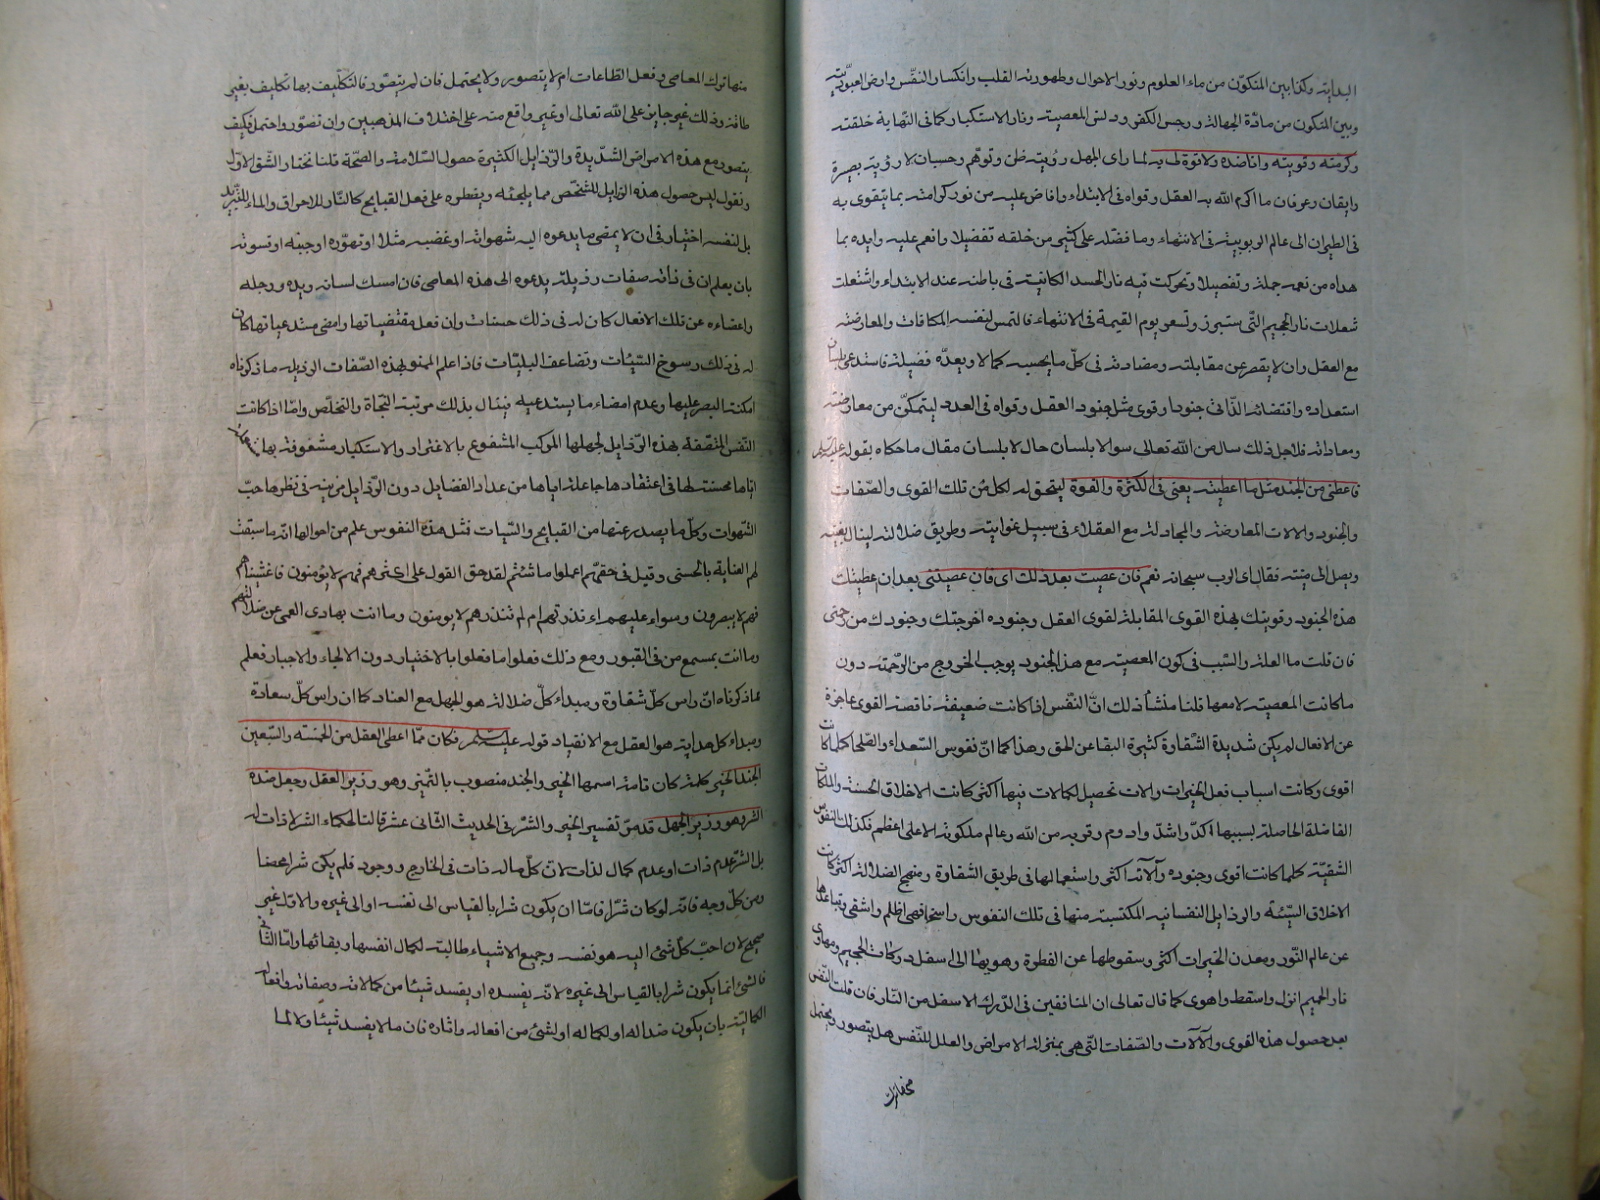 البداية وكذا بين المتكوّن من ماء العلوم ونور الاحوال وطهورية القلب وانكسار النفس وارض العبوّدية
وبين المتكون من مادّة الجهالة ورجس الكفر ودنس المعصية ونار الاستكبار كما فى النّهاية خلقته
وكرمته وقويته وانا ضده ولا قوة لى به لما راى الجهل رؤيته ظن وتوهّم وحسبان لا رؤية بصيرة
وايقان وعرفان ما اكرم الله به العقل وقواه فى الابتداء وافاض عليه من نور كرامته بما يتقوى به
فى الطيران الى عالم الربوبية فى الانتهاء وما فضّله على كثير من خلقه تفضيلا وانعم عليه وايده بما
هداه من نعمه جملة وتفصيلا وتحركت فيه نار الحسد الكائنة فى باطنه عند الابتداء واشتعلت
شعلات نار الجحيم الّتى ستبرز وتسعر يوم القيمة فى الانتهاء فالتمس لنفسه المكافات والمعارضة
مع العقل وان لا يقصر عن مقابلته ومضادته فى كلّ ما يحسبه كمالا ويعدّه فضيلة فاستدعى بلسان
استعداده واقتضائه الذّاتى جنودا وقوى مثل جنود العقل وقواه فى العدد ليتمكّن من معارضته
ومعاداته فلاجل ذلك سال من الله تعالى سوالا بلسان حال لا بلسان مقال ما حكاه بقوله عليه السلم
فاعطنى من الجند مثل ما اعطيته يعنى فى الكثرة والقوة ليتحقق له لكل من تلك القوى والصّفات
والجنود والالات المعارضة والمجادلة مع العقلاء فى سبيل غوايته وطريق ضلالته لينال بغيته
ويصل الى منيته فقال اى الرب سبحانه نعم فان عصيت بعد ذلك اى فان عصيتنى بعد ان اعطيتك
هذه الجنود وقويتك بهذه القوى المقابلة لقوى العقل وجنوده اخرجتك وجنودك من رحمتى
فان قلت ما العلة والسّبب فى كون المعصية مع هذ الجنود يوجب الخروج من الرّحمة دون
ما كانت المعصية لا معها قلنا منشأ ذلك انّ النّفس اذا كانت ضعيفة ناقصة القوى عاجزة
عن الافعال لم يكن شديدة الشّقاوة كثيرة البقا عن الحق وهذا كما انّ نفوس السّعداء والصّلحا كلما كانت
اقوى وكانت اسباب فعل الخيرات والات تحصيل لكمالات فيها اكثر كانت الاخلاق الحسنة والملكات
الفاضلة الحاصلة بسببها اكدّ واشدّ وادوم وقربه من الله وعالم ملكوته الاعلى اعظم فكذلك النفوس
الشقيّة كلما كانت اقوى وجنوده وآلاته اكثر واستعمالها فى طريق الشقاوة ومنهج الضلالة اكثر كانت
الاخلاق السّيئة والرذايل النفسانيه المكتسبة منها فى تلك النفوس واسخافهى اظلم واشقى وتباعدها
عن عالم النّور ومعدن الخيرات اكثر وسقوطها عن الفطرة وهويها الى اسفل دركات الجحيم ومهاوى
نار الحميم انزل واسقط واهوى كما قال تعالى ان المنافقين فى الدّرك الاسفل من النّار فان قلت النّفس
بعد حصول هذه القوى والآلات والصّفات الّتى هى بمنزلة الامراض والعلل للنّفس هل يتصور ويحتمل
منها ترك المعاصى وفعل الطّاعات ام لا يتصور ولا يحتمل فان لم يتصّور فالتكلّيف بها تكليف بغير
طاقة وذلك غير جايز على الله تعالى او غير واقع منه على اختلاف المذهبين وان تصوّر واحتمل فكيف
يتصور مع هذه الامراض الشّديدة والرّذايل الكثيرة حصول السّلامة والصّحة قلنا نختار الشّق الاوّل
ونقول ليس حصول هذه الرذايل للشّخصّ مما يلجئه ويضطره على فعل القبايح كالنّار للاحراق والماء للتّبريد
بل لنفسه اختيار فى ان لا يمضى ما يدعوه اليه شهواته او غضبه مثلا او تهوّره او جبنه او قسوته
بان يعلم ان فى ذاته صفات رذيلة يدعوه الى هذه المعاصى فان امسك لسانه ويده ورجله
واعضاءه عن تلك الافعال كان له فى ذلك حسنات وان فعل مقتضياتها وامضى مستدعياتها كان
له فى ذلك رسوخ السّيئات وتضاعف البليّات فاذا علم الممنو بهذه الصّفات الرذيله ما ذكرناه
امكنه الصبر عليها وعدم امضاء ما يستدعيه فينال بذلك مرتبة النّجاة والتخلّص وامّا اذا كانت
النّفس المتصّفة بهذه الرّذايل لجهلها المركب المشفوع بالاغترار والاستكبار مشعوفة بها
اياها محسنة لها فى اعتقادها جاعلة اياها من عداد الفضايل دون الرّذايل مزينة فى نظرها حبّ
الشّهوات وكلّ ما يصدر عنها من القبايح والسّيات فمثل هذه النفوس علم من احوالها انّه ما سبقت
لهم العناية بالحسنى وقيل فى حقهّم اعملوا ما شئتم لقد حق القول على اكثرهم فهم لا يؤمنون فاغشيناهم
فهم لا يبصرون وسواء عليهم ءانذرتهم ام لم تنذرهم لا يومنون وما انت بهادى العمى عن ضلالتهم
وما انت بمسمع من فى القبور ومع ذلك فعلوا ما فعلوا بالاختيار دون الالجاء والاجبار فعلم
مما ذكرناه انّ راس كلّ شقاوة ومبداء كلّ ضلالة هو الجهل مع العناد كما ان راس كلّ سعادة
ومبداء كل هداية هو العقل مع الانقياد قوله عليه السلم فكان ممّا اعطى العقل من الخمسة والسّبعين
الجند الخير كلمة كان تامة اسمها الخير والجند منصوب بالتّميز وهو وزير العقل وجعل ضده
الشر وهو وزير الجهل قد مرّ تفسير الخير والشرّ فى الحديث الثّانى عشر قالت الحكماء الشرّ لا ذات له
بل الشّر عدم ذات او عدم كمال لذات لانّ كلّ ما له ذات فى الخارج ووجود فلم يكن شرا محضا
ومن كلّ وجه فانّه لو كان شرّا فامّا ان يكون شرا بالقياس الى نفسه او الى غيره والاوّل غير
صحيح لان احبّ كلّ شئ اليه هو نفسه وجميع الاشياء طالبة لكمال انفسها وبقائها وامّا الثّانى
فالشئ انما يكون شرا بالقياس الى غيره لانّه يفسده او يفسد شيئا من كمالاته وصفاته وافعاله
الكماليّة بان يكون ضدا له او لكماله او لشئ من افعاله واثاره فان ما لا يفسد شيئا ولا لما